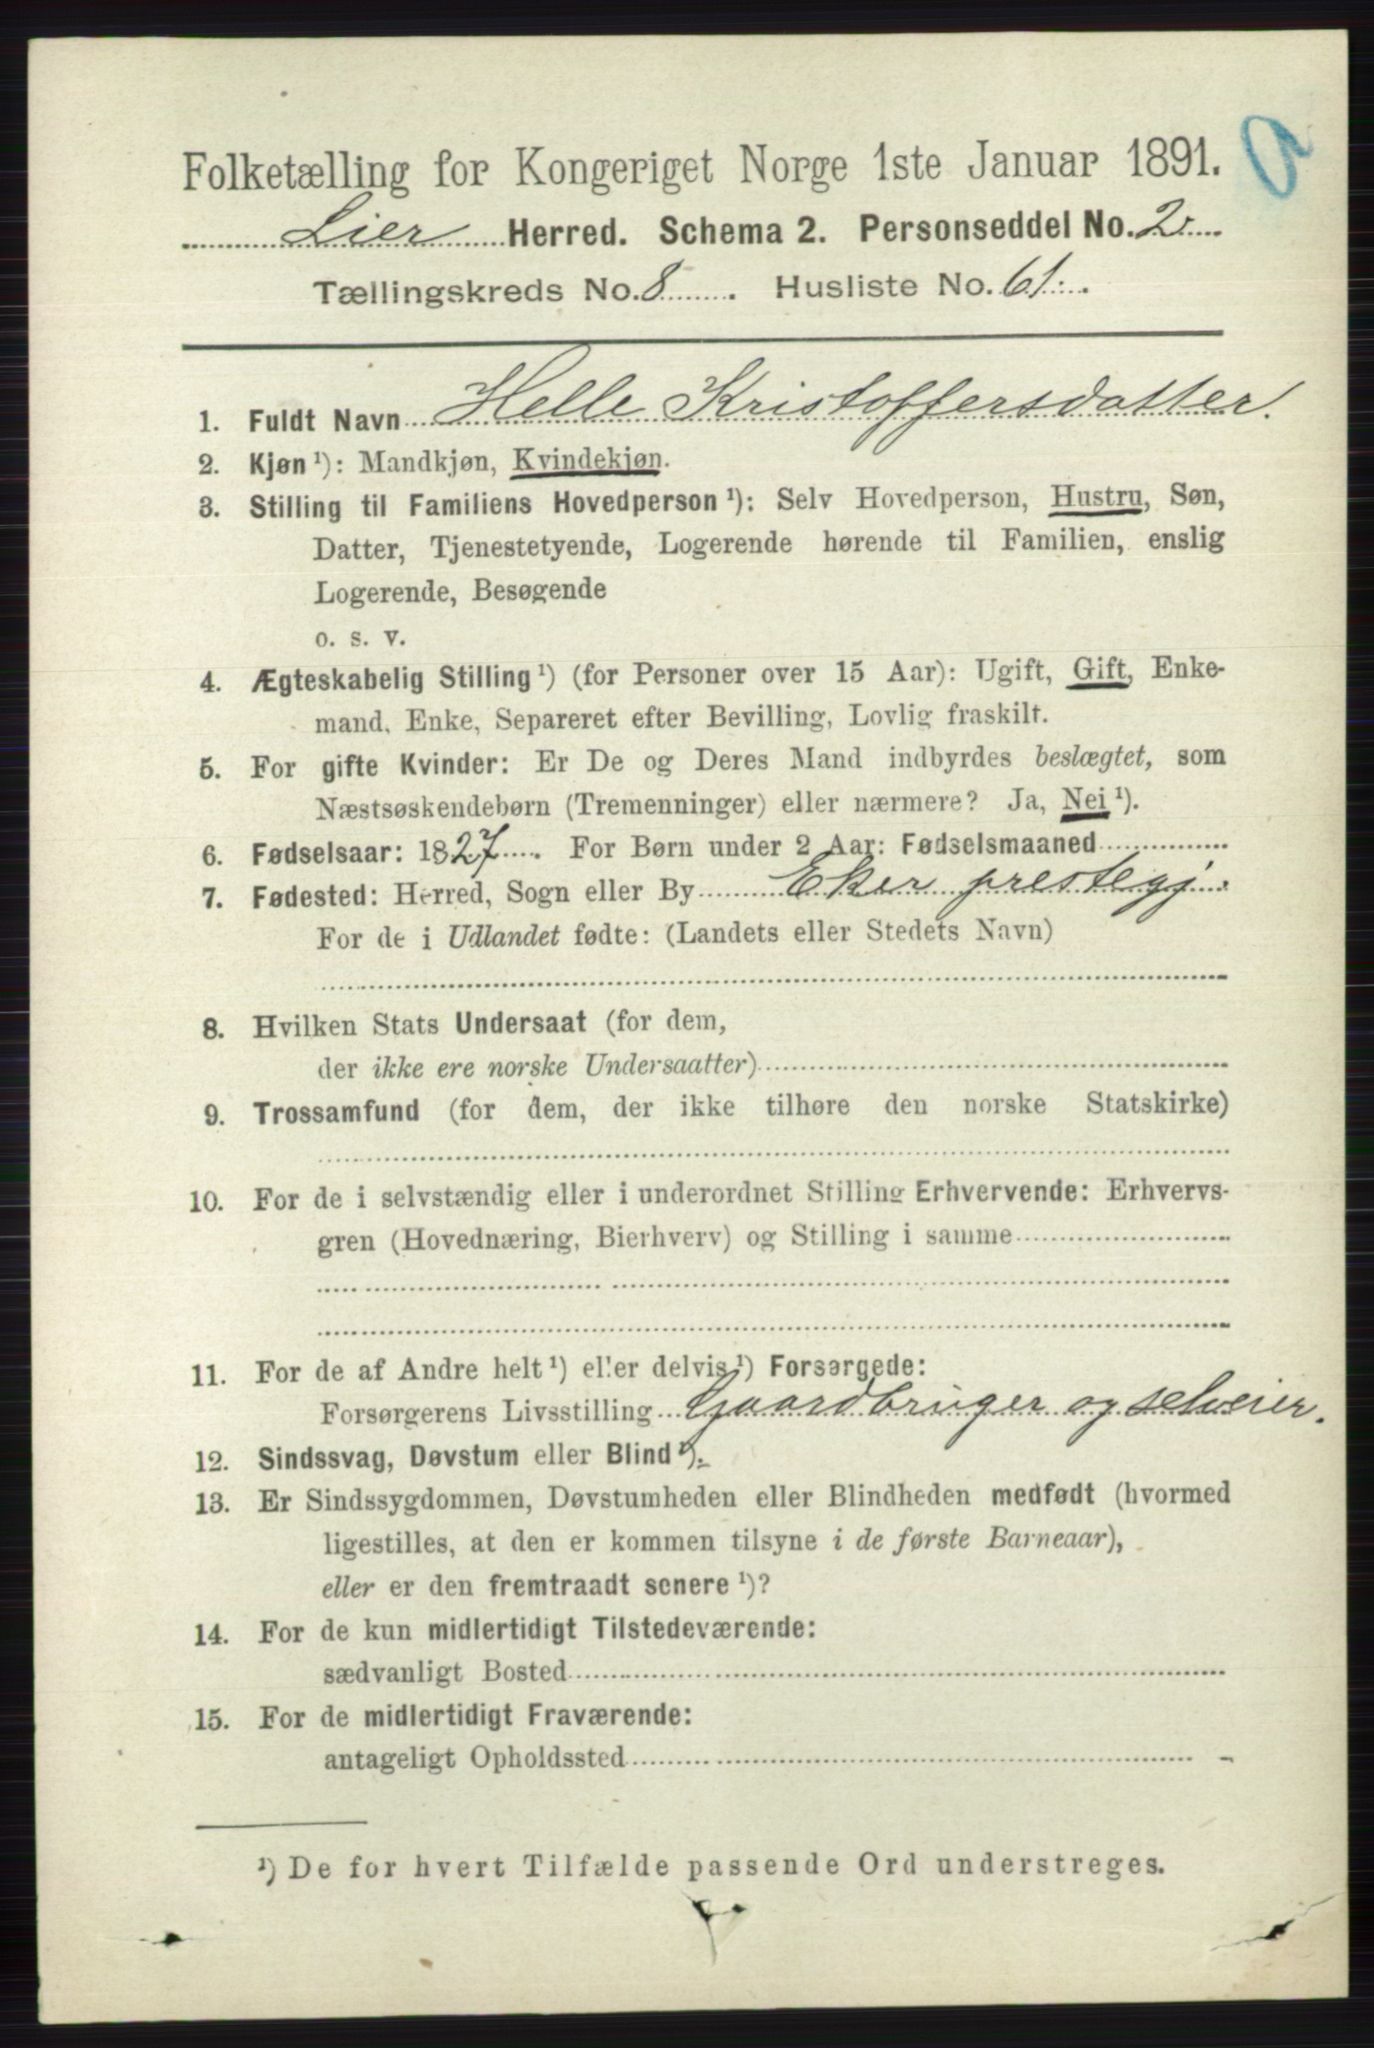 Folketælling for Kongeriget Norge 1ste Januar 1891.
Lier Herred. Schema 2. Personseddel No. 2
Tællingskreds No. 8. Husliste No. 61.
1. Fuldt Navn Helle Kristoffersdatter.
2. Kjøn¹): Mandkjøn, Kvindekjøn.
3. Stilling til Familiens Hovedperson¹): Selv Hovedperson, Hustru, Søn,
Datter, Tjenestetyende, Logerende hørende til Familien, enslig
Logerende, Besøgende
o. s. v.
4. Ægteskabelig Stilling¹) (for Personer over 15 Aar): Ugift, Gift, Enke-
mand, Enke, Separeret efter Bevilling, Lovlig fraskilt.
5. For gifte Kvinder: Er De og Deres Mand indbyrdes beslægtet, som
Næstsøskendebørn (Tremenninger) eller nærmere? Ja, Nei¹).
6. Fødselsaar: 1827. For Børn under 2 Aar: Fødselsmaaned
7. Fødested: Herred, Sogn eller By Eker prestegj.
For de i Udlandet fødte: (Landets eller Stedets Navn)
8. Hvilken Stats Undersaat (for dem,
der ikke ere norske Undersaatter)
9. Trossamfund (for dem, der ikke tilhøre den norske Statskirke)
10. For de i selvstændig eller i underordnet Stilling Erhvervende: Erhvervs-
gren (Hovednæring, Bierhverv) og Stilling i samme
11. For de af Andre helt¹) eller delvis¹) Forsørgede:
Forsørgerens Livsstilling Gaardbruger og selveier.
12. Sindssvag, Døvstum eller Blind¹).
13. Er Sindssygdommen, Døvstumheden eller Blindheden medfødt (hvormed
ligestilles, at den er kommen tilsyne i de første Barneaar),
eller er den fremtraadt senere¹)?
14. For de kun midlertidigt Tilstedeværende:
sædvanligt Bosted
15. For de midlertidigt Fraværende:
antageligt Opholdssted
¹) De for hvert Tilfælde passende Ord understreges.